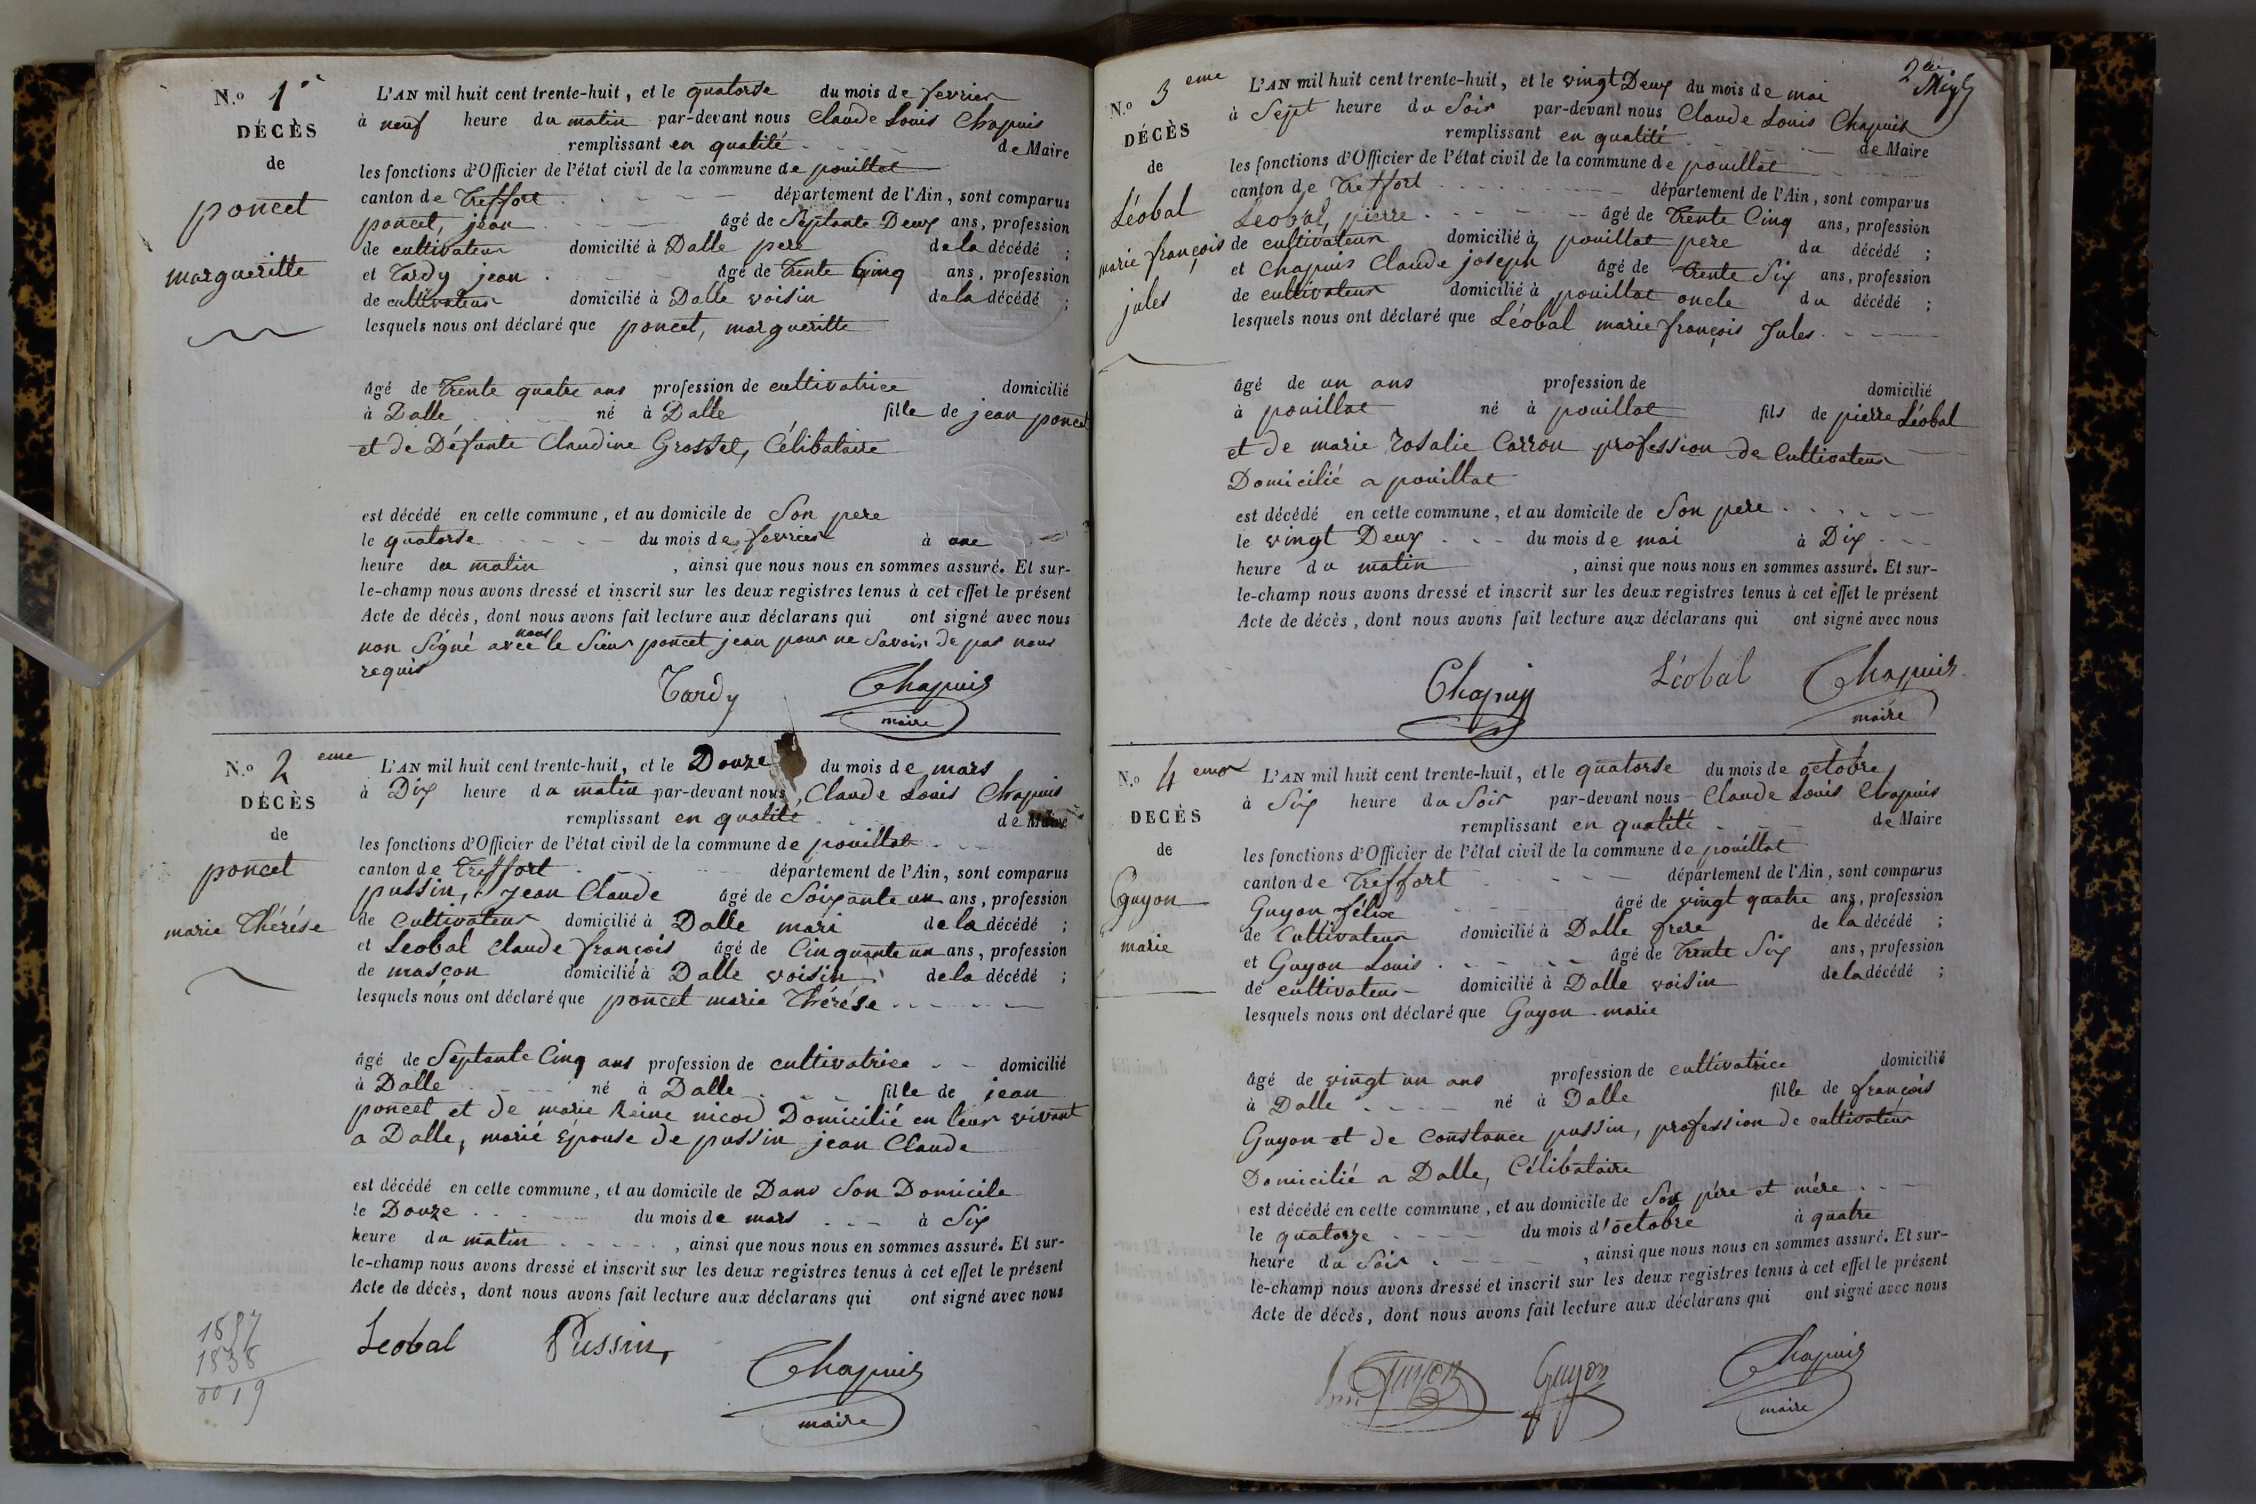 N.o 1er
DÉCÈS
de
poncet
margueritte
L'AN mil huit cent trente-huit, et le quatorse du mois de fevrier
à neuf heure du matin par-devant nous Claude Louis Chapuis
remplissant en qualité de Maire
les fonctions d'Officier de l'état civil de la commune de pouillat
canton de Treffort département de l'Ain, sont comparus
poncet, jean âgé de Septante Deux ans, profession
de cultivateur domicilié à Dalle pere de la décédé ;
et Tardy jean âgé de trente Cinq ans, profession
de cultivateur domicilié à Dalle voisin de la décédé ;
lesquels nous ont déclaré que poncet, margueritte
âgé de trente quatre ans profession de cultivatrice domicilié
à Dalle né à Dalle fille de jean poncet
et de Défunte Claudine Grosset, Célibataire
est décédé en cette commune, et au domicile de Son pere
le quatorse du mois de fevrier à une
heure du matin , ainsi que nous nous en sommes assuré. Et sur-
le-champ nous avons dressé et inscrit sur les deux registres tenus à cet effet le présent
Acte de décès, dont nous avons fait lecture aux déclarans qui ont signé avec nous
non Signé avec nous le Sieur poncet jean pour ne Savoir de par nous
requis
Tardy Chapuis
maire
N.o 2 eme
DÉCÈS
de
poncet
marie Thérése
L'AN mil huit cent trente-huit, et le Douze du mois de mars
à Dix heure du matin par-devant nous, Claude Louis Chapuis
remplissant en qualité de Maire
les fonctions d'Officier de l'état civil de la commune de pouillat
canton de Treffort département de l'Ain, sont comparus
pussin, jean Claude âgé de Soixante un ans, profession
de Cultivateur domicilié à Dalle mari de la décédé ;
et Leobal Claude françois âgé de Cinquante un ans, profession
de masçon domicilié à Dalle voisin de la décédé ;
lesquels nous ont déclaré que poncet marie Thérése
âgé de Septante Cinq ans profession de cultivatrice domicilié
à Dalle né à Dalle fille de jean
poncet et de marie Reine nicod Domicilié en leur vivant
a Dalle, marié Epouse de pussin jean Claude
est décédé en cette commune, et au domicile de Dans Son Domicile
le Douze du mois de mars à Six
heure du matin , ainsi que nous nous en sommes assuré. Et sur-
le-champ nous avons dressé et inscrit sur les deux registres tenus à cet effet le présent
Acte de décès, dont nous avons fait lecture aux déclarans qui ont signé avec nous
Leobal Pussin,
Chapuis
maire
1857
1838
0019
2e
N.o 3 eme
DÉCÈS
de
Léobal
marie françois
jules
L'AN mil huit cent trente-huit, et le vingt Deux du mois de mai
à Sept heure du Soir par-devant nous Claude Louis Chapuis
remplissant en qualité de Maire
les fonctions d'Officier de l'état civil de la commune de pouillat
canton de Treffort département de l'Ain, sont comparus
Leobal, pierre âgé de trente Cinq ans, profession
de cultivateur domicilié à pouillat pere du décédé ;
et Chapuis Claude joseph âgé de trente Six ans, profession
de cultivateur domicilié à pouillat oncle du décédé ;
lesquels nous ont déclaré que Léobal marie françois Jules
âgé de un ans profession de domicilié
à pouillat né à pouillat fils de pierre Léobal
et de marie rosalie Carron profession de Cultivateur
Domicilié a pouillat
est décédé en cette commune, et au domicile de Son pere
le vingt Deux du mois de mai à Dix
heure du matin , ainsi que nous nous en sommes assuré. Et sur-
le-champ nous avons dressé et inscrit sur les deux registres tenus à cet effet le présent
Acte de décès, dont nous avons fait lecture aux déclarans qui ont signé avec nous
Chapuis Léobal Chapuis
maire
N.o 4 eme
DECÈS
de
Guyon
marie
L'AN mil huit cent trente-huit, et le quatorse du mois de octobre
à Six heure du Soir par-devant nous Claude Louis Chapuis
remplissant en qualité de Maire
les fonctions d'Officier de l'état civil de la commune de pouillat
canton de Treffort département de l'Ain, sont comparus
Guyon félix âgé de vingt quatre ans, profession
de Cultivateur domicilié à Dalle frere de la décédé ;
et Guyon Louis âgé de trente Six ans, profession
de cultivateur domicilié à Dalle voisin de la décédé ;
lesquels nous ont déclaré que Guyon marie
âgé de vingt un ans profession de cultivatrice domicilié
à Dalle né à Dalle fille de françois
Guyon et de Constance pussin, profession de cultivateur
Domicilié a Dalle, Célibataire
est décédé en cette commune, et au domicile de Son pére et mére
le quatorze du mois d'octobre à quatre
heure du Soir , ainsi que nous nous en sommes assuré. Et sur-
le-champ nous avons dressé et inscrit sur les deux registres tenus à cet effet le présent
Acte de décès, dont nous avons fait lecture aux déclarans qui ont signé avec nous
Guyon Guyon Chapuis
maire